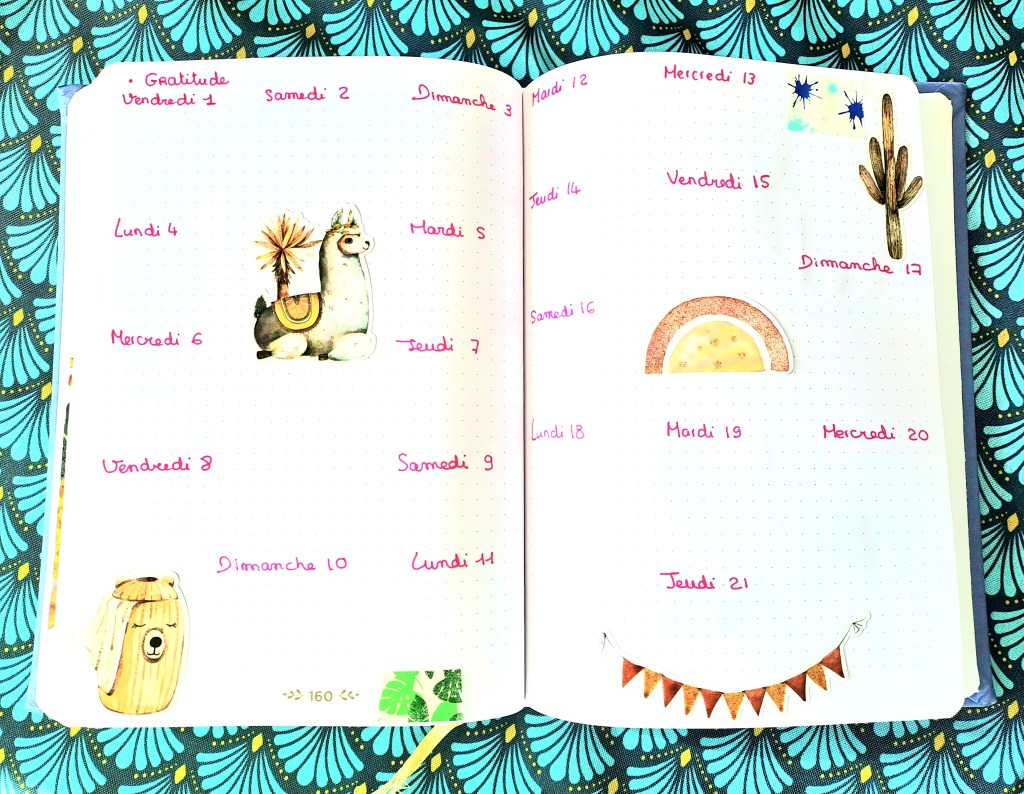 • Gratitude
Vendredi 1
Samedi 2
Dimanche 3
Lundi 4
Mardi 5
Mercredi 6
Jeudi 7
Vendredi 8
Samedi 9
Dimanche 10
Lundi 11
160
Mardi 12
Mercredi 13
Jeudi 14
Vendredi 15
Samedi 16
Dimanche 17
Lundi 18
Mardi 19
Mercredi 20
Jeudi 21